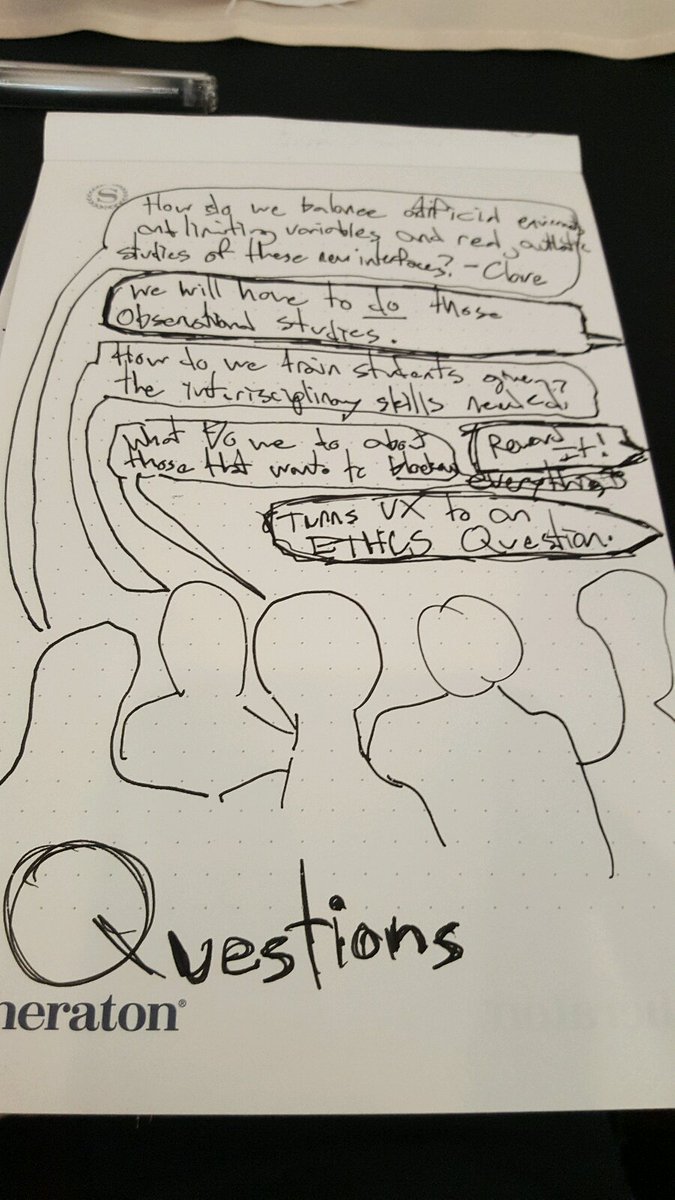 S
How do we balance
and limiting variables and
studies of these new interfaces? - Clare
We will have to do those
Observational studies.
How do we train students given
the skills needed?
What do we do about
those that want to
Reward it!
everything
Turns UX to an
ETHCS Question.
Questions
heraton®